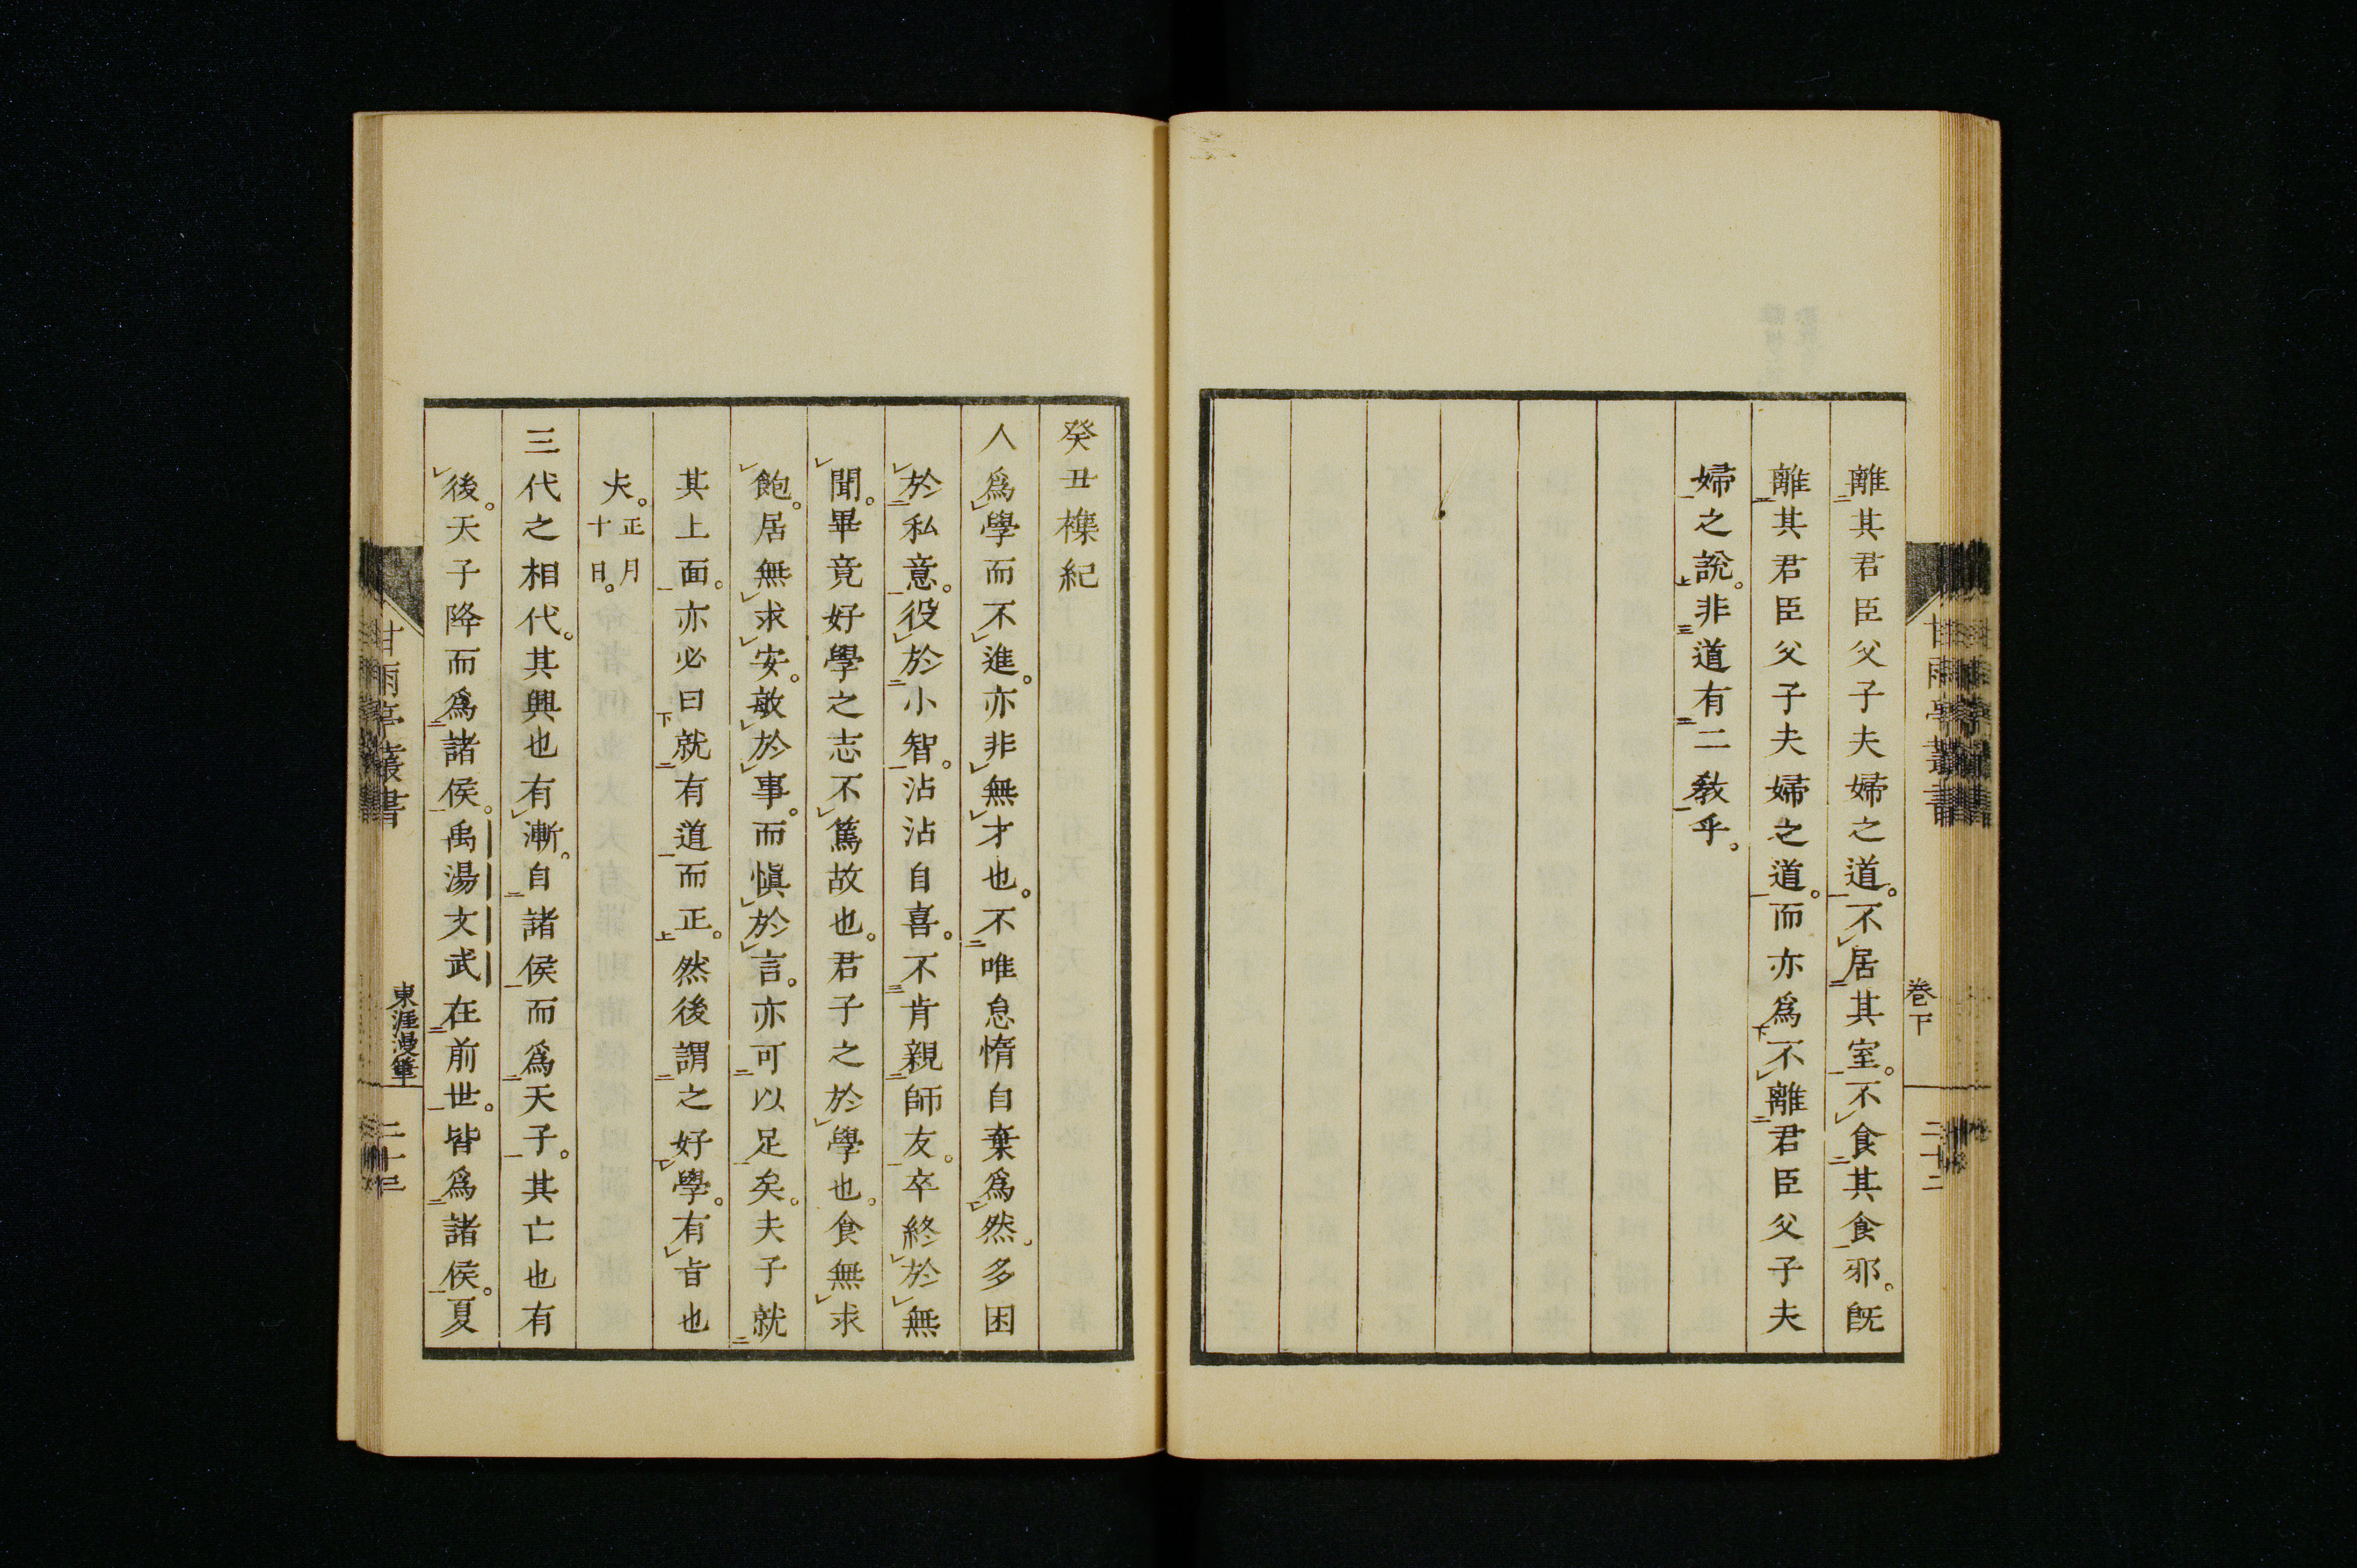 離其君臣父子夫婦之道。不居其室。不食其食邪。既
離其君臣父子夫婦之道。而亦爲不離君臣父子夫
婦之說。非道有二教乎。
甘雨亭叢書
卷下
二十二
癸丑襍紀
人爲學而不進。亦非無才也。不唯怠惰自棄爲然。多困
於私意。役於小智。沾沾自喜。不肯親師友。卒終於無
聞。畢竟好學之志不篤故也。君子之於學也。食無求
飽。居無求安。敏於事。而愼於言。亦可以足矣。夫子就
其上面。亦必曰就有道而正。然後謂之好學。有旨也
夫。正月十日。
三代之相代。其興也有漸。自諸侯而爲天子。其亡也有
後。天子降而爲諸侯。禹湯文武在前世。皆爲諸侯。夏
甘雨亭叢書
東涯漫筆
二十三